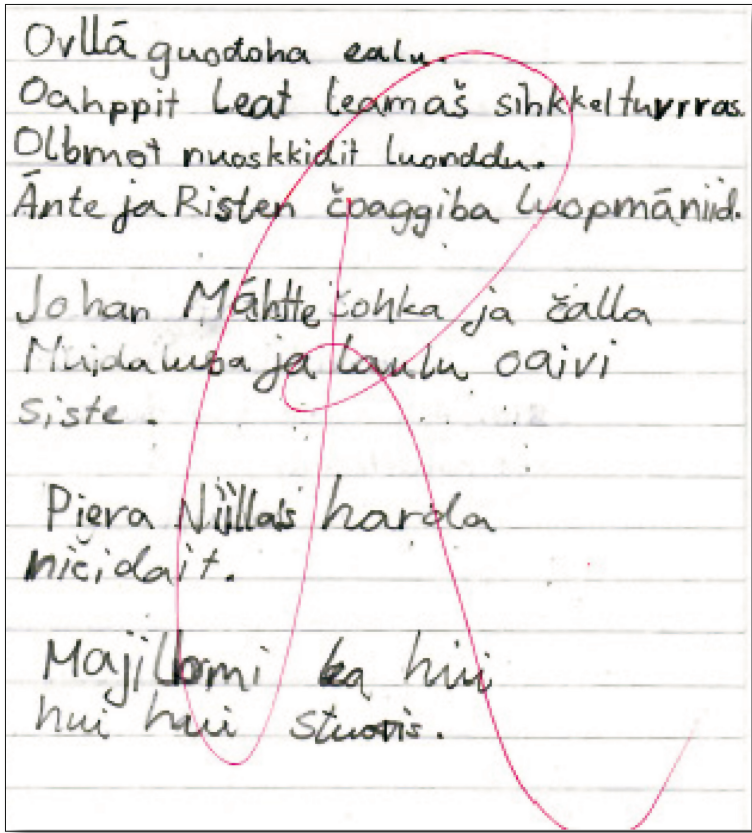 Ovllá guodoha ealu.
Oahppit leat leamaš sihkkelturrras.
Olbmot nuoskkidit luonddu.
Ánte ja Risten čoaggiba luopmániid.
Johan Máhtte čohka ja čálla
ja laulu oaivi
siste.
Piera Niillas harda
ničidait.
Majilbmi lea hui
hui hui stuoris.